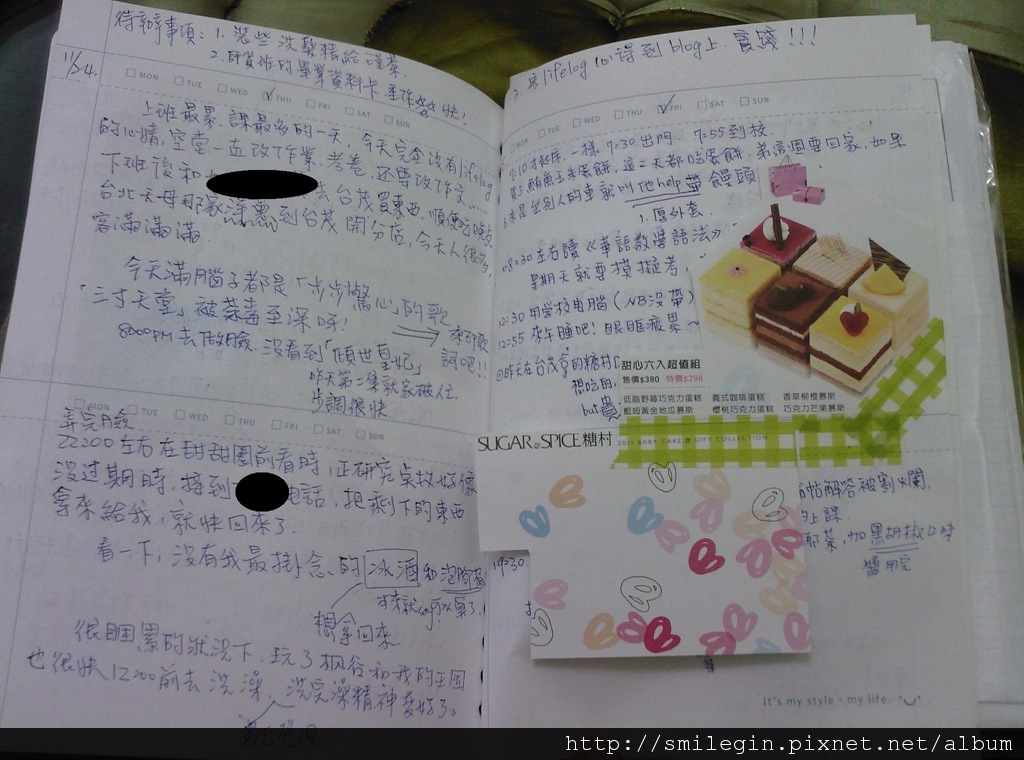 待辦事項: 1. 洗髮精給
2. 師資班的畢業資料卡. 快!
11/24.
MON TUE WED THU FRI SAT SUN
上班最累.課最多的一天. 今天完全沒有lifelog
的心情,空堂一直改作業.考卷.還要改作文...
下班後和 去台茂買東西.順便吃晚点
台北天母那家 到台茂開分店,今天人很多
客滿滿滿.
今天滿腦子都是「步步驚心」的歌
「三寸天堂」被荼毒至深呀!
來听歌
詞吧!!
8:00pm 去 沒看到「傾世皇妃」
昨天第二集就家破人亡
步調很快
MON TUE WED THU FRI SAT SUN
弄完
22:00左右在甜甜圈前看時,正研究 好像
沒过期時.接到 电話,把剩下的東西
拿來給我,就快回來了.
看一下,沒有我最掛念的 冰酒 和
想拿回來
很睏累的狀況下.玩了楓谷和我的王国
也很快12:00前去洗澡、洗完澡精神变好了。
lifelog心得到blog上. 實踐!!!
MON TUE WED THU FRI SAT SUN
7:10才起床,一樣7:30出門. 7:55到校.
買了鮪魚玉米蛋餅.這二天都吃蛋餅. 弟這個要回家,如果
來是坐別人的車就叫他help帶饅頭
1. 厚外套.
08:30左右讀《華語教學語法》
星期天就要模擬考,
12:30 用学校电腦(NB沒帶)
12:55 來午睡吧! 眼睛疲累~
昨天在台茂拿的糖村
想吃的,
but貴
甜心六入超值組
售價$380 特價$298
低脂野莓巧克力蛋糕 義式咖啡蛋糕 香草柳橙慕斯
藍姆黃金地瓜慕斯 櫻桃巧克力蛋糕 巧克力芒果慕斯
SUGAR & SPICE 糖村 2011 BABY CAKE & GIFT COLLECTION
解答被劃爛.
上課.
加黑胡椒口味
醬用完
19:30
It's my style・my life.
http://smilegin.pixnet.net/album